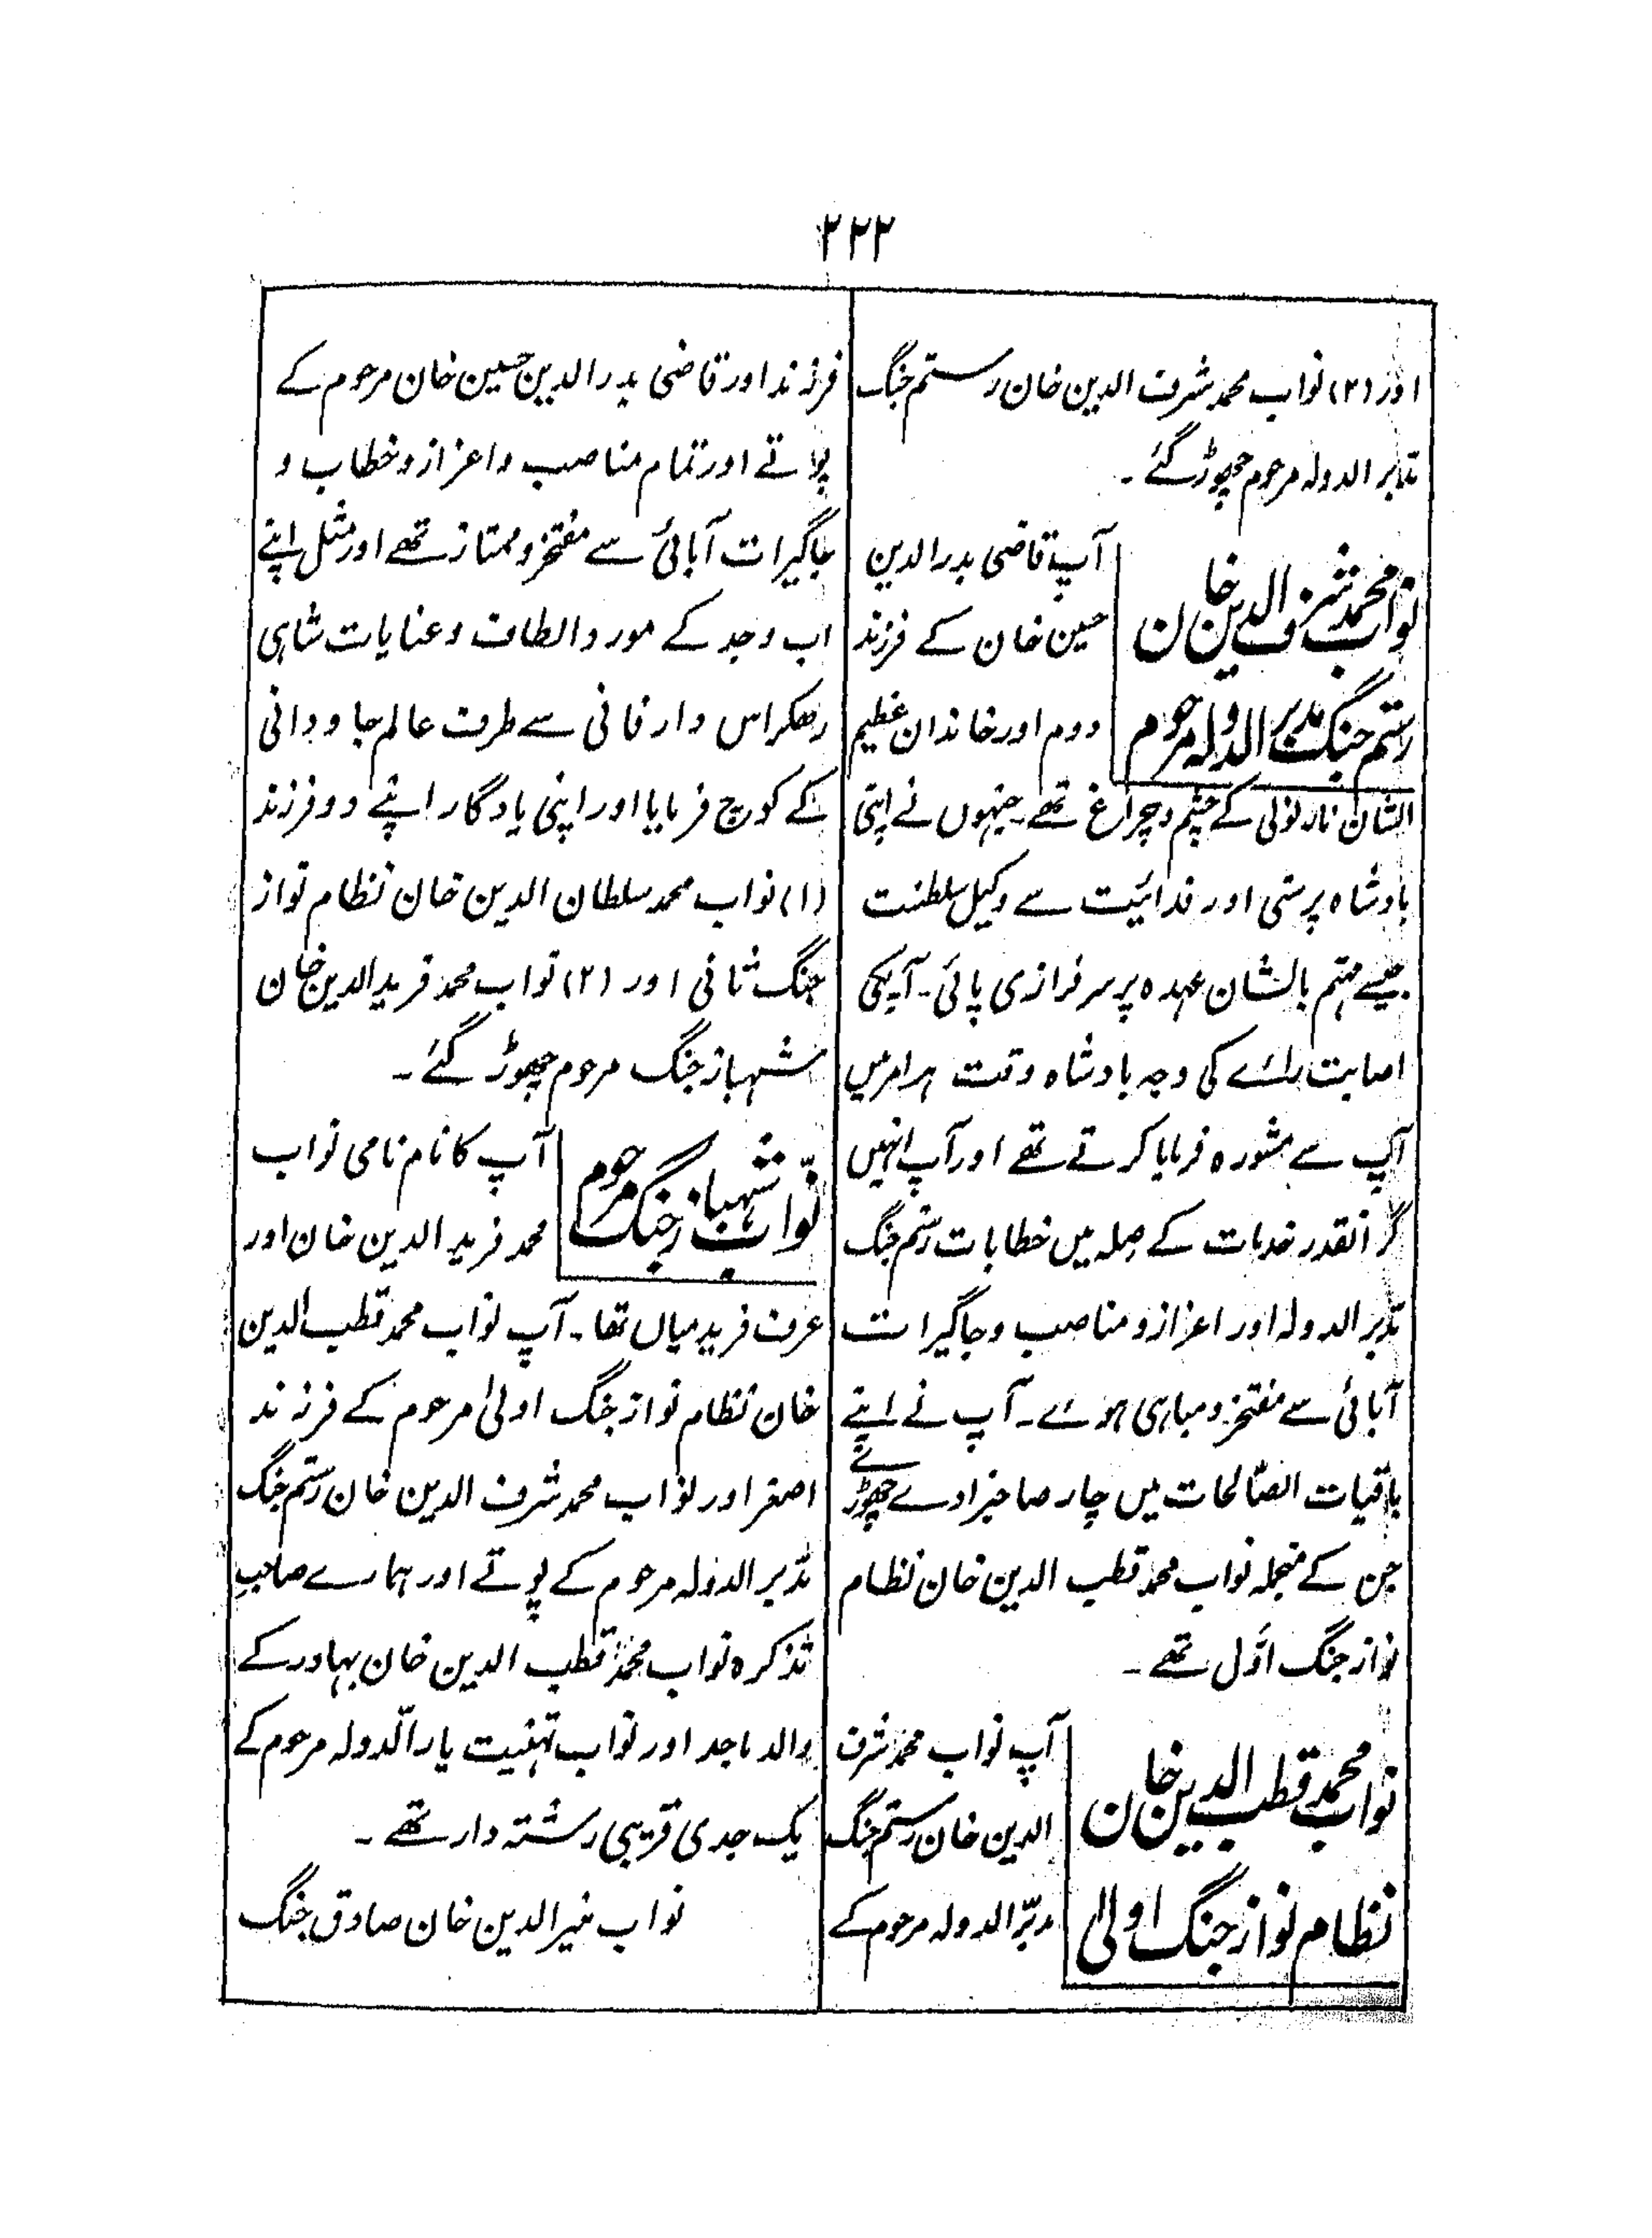 ۲۲۲
اور (۲) نواب محمد شرف الدین خان رستم جنگ
مدبر الدولہ مرحوم چھوڑ گئے ۔
نواب محمد شرف الدین خان
رستم جنگ مدبر الدولہ مرحوم
آپ قاضی بدر الدین
حسین خان کے فرزند
دوم اور خاندان عظیم
الشان نارنولی کے چشم و چراغ تھے ۔ جنہوں نے اپنی
بادشاہ پرستی اور فدائیت سے وکیل سلطنت
جیسے مہتم بالشان عہدہ پر سرفرازی پائی ۔ آپکی
اصابت رائے کی وجہ بادشاہ وقت ہر امر میں
آپ سے مشورہ فرمایا کرتے تھے اور آپ انہیں
گرانقدر خدمات کے صلہ میں خطابات رستم جنگ
مدبر الدولہ اور اعزاز و مناصب و جاگیرات
آبائی سے مفتخر و مباہی ہوے ۔ آپ نے اپنے
باقیات الصّالحات میں چار صاحبزادے چھوڑے
جن کے منجملہ نواب محمد قطب الدین خان نظام
نواز جنگ اوّل تھے ۔
نواب محمد قطب الدین خان
نظام نواز جنگ اولیٰ
آپ نواب محمد شرف
الدین خان رستم جنگ
مدبّر الدولہ مرحوم کے
فرزند اور قاضی بدر الدین حسین خان مرحوم کے
پوتے اور تمام مناصب و اعزاز و خطاب و
جاگیرات آبائی سے مفتخر و ممتاز تھے اور مثل اپنے
اب وجد کے مورد الطاف و عنایات شاہی
رھکر اس دار فانی سے طرف عالم جاودانی
کے کوچ فرمایا اور اپنی یادگار اپنے دو فرزند
(۱) نواب محمد سلطان الدین خان نظام نواز
جنگ ثانی اور (۲) نواب محمد فرید الدین خان
شہباز جنگ مرحوم چھوڑ گئے ۔
نوّاب شہباز جنگ مرحوم
آپ کا نام نامی نواب
محمد فرید الدین خان اور
عرف فرید میاں تھا ۔ آپ نواب محمد قطب الدین
خان نظام نواز جنگ اولیٰ مرحوم کے فرزند
اصغر اور نواب محمد شرف الدین خان رستم جنگ
مدبر الدولہ مرحوم کے پوتے اور ہمارے صاحبِ
تذکرہ نواب محمد قطب الدین خان بہادر کے
والد ماجد اور نواب تہنیت یار الّدولہ مرحوم کے
یک جدی قریبی رشتہ دار تھے ۔
نواب منیر الدین خان صادق جنگ